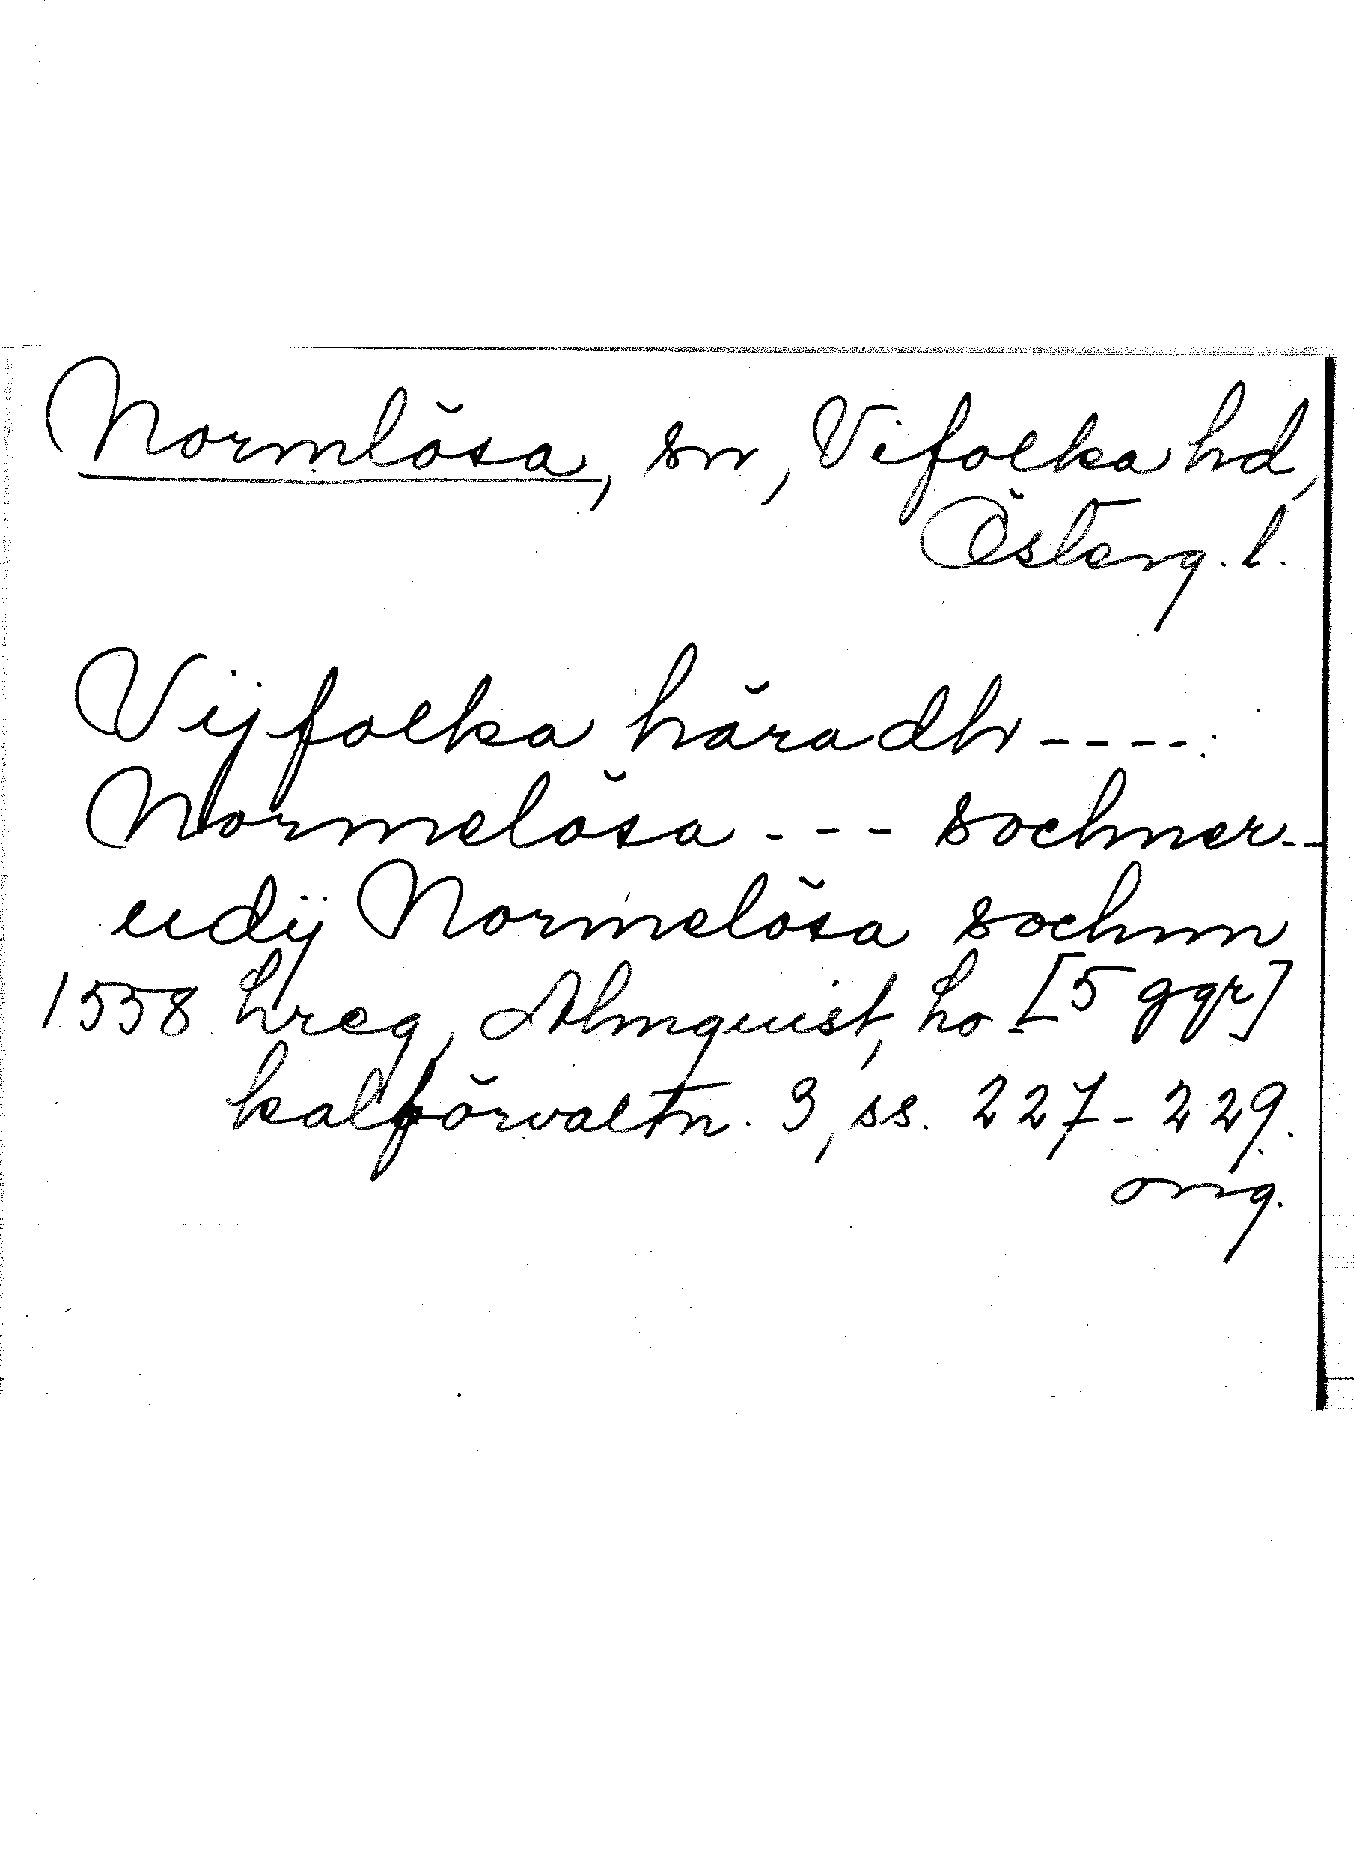 Normlösa, sn, Vifolka hd,
Österg. l.
Vijfolka häradh ----:
Normelösa --- sochner--
udij Normelösa sochnn
1558 hreg, Almquist, Lo- [5 ggr]
kalförvaltn. 3, ss. 227-229.
orig.